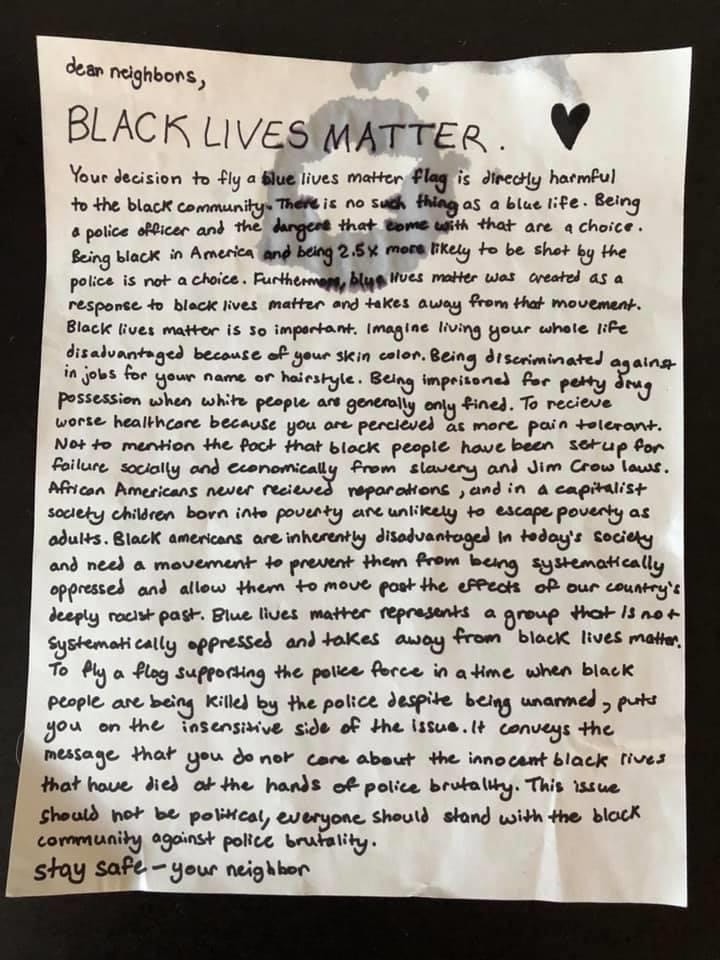 dear neighbors,
BLACK LIVES MATTER.
Your decision to fly a blue lives matter flag is directly harmful
to the black community. There is no such thing as a blue life. Being
a police officer and the dangers that come with that are a choice.
Being black in America and being 2.5x more likely to be shot by the
police is not a choice. Furthermore, blue lives matter was created as a
response to black lives matter and takes away from that movement.
Black lives matter is so important. Imagine living your whole life
disadvantaged because of your skin color. Being discriminated against
in jobs for your name or hairstyle. Being imprisoned for petty drug
possession when white people are generally only fined. To recieve
worse healthcare because you are percieved as more pain tolerant.
Not to mention the fact that black people have been set up for
failure socially and economically from slavery and Jim Crow laws.
African Americans never recieved reparations, and in a capitalist
society children born into poverty are unlikely to escape poverty as
adults. Black americans are inherently disadvantaged in today's society
and need a movement to prevent them from being systematically
oppressed and allow them to move past the effects of our country's
deeply racist past. Blue lives matter represents a group that is not
systematically oppressed and takes away from black lives matter.
To fly a flag supporting the police force in a time when black
people are being killed by the police despite being unarmed, puts
you on the insensitive side of the issue. It conveys the
message that you do not care about the innocent black lives
that have died at the hands of police brutality. This issue
should not be political, everyone should stand with the black
community against police brutality.
stay safe - your neighbor